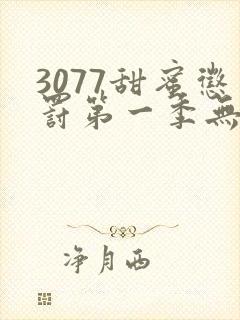 3077甜蜜懲
罰第一季無
净月西